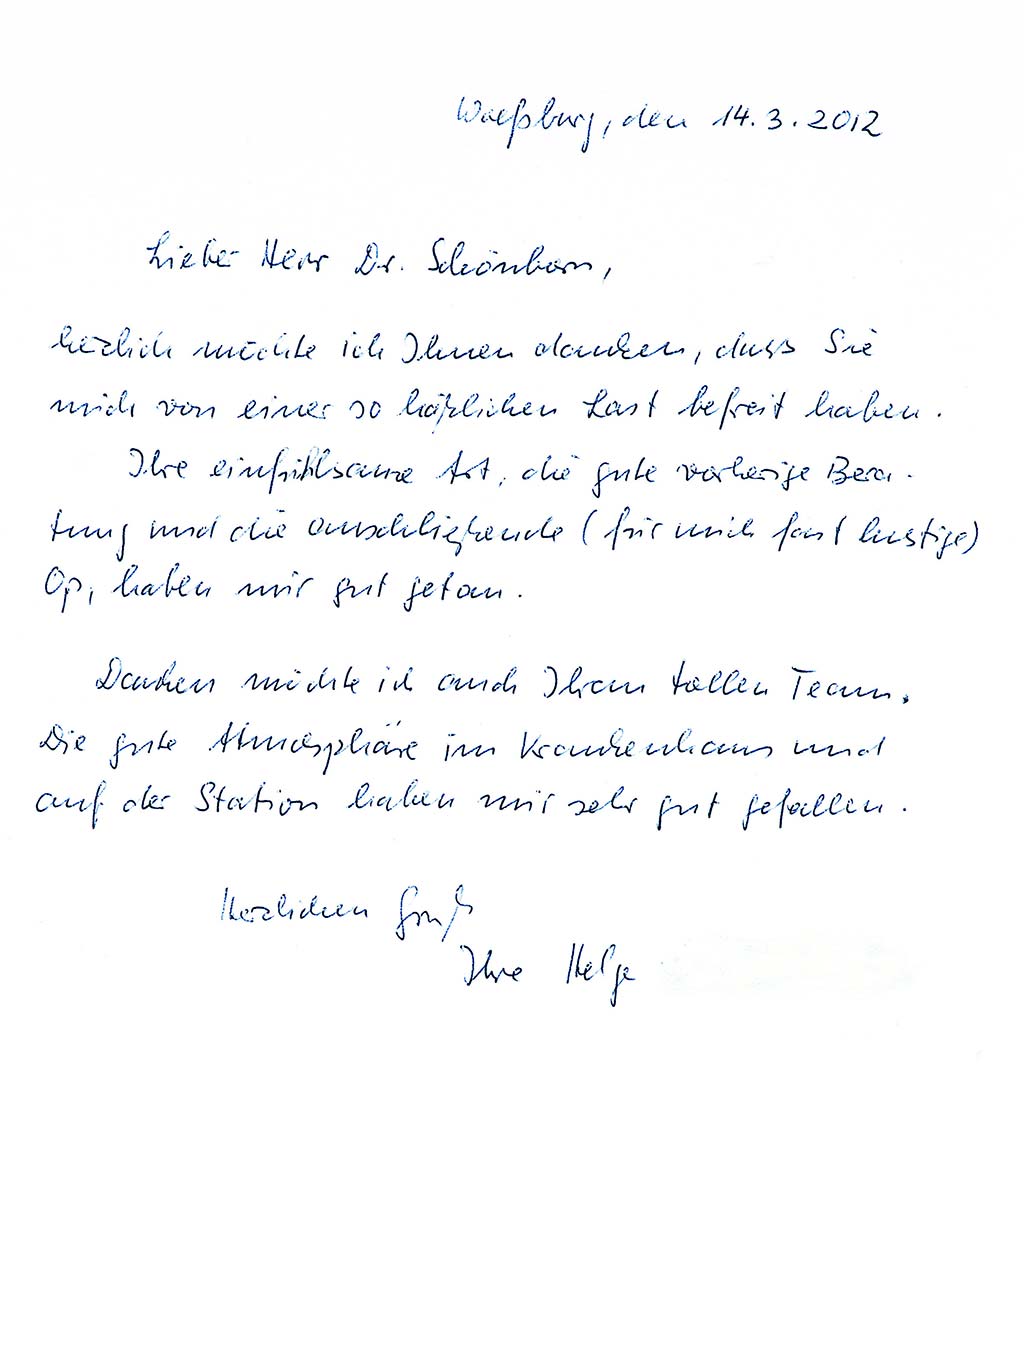 Wolfsburg, den 14.3.2012
Lieber Herr Dr. Schönborn,
herzlich möchte ich Ihnen danken, dass Sie
mich von einer so häßlichen Last befreit haben.
Ihre einfühlsame Art, die gute vorherige Bera-
tung und die anschließende (für mich fast lustige)
Op, haben mir gut getan.
Danken möchte ich auch Ihrem tollen Team.
Die gute Atmosphäre im Krankenhaus und
auf der Station haben mir sehr gut gefallen.
Herzlichen Gruß
Ihre Helga